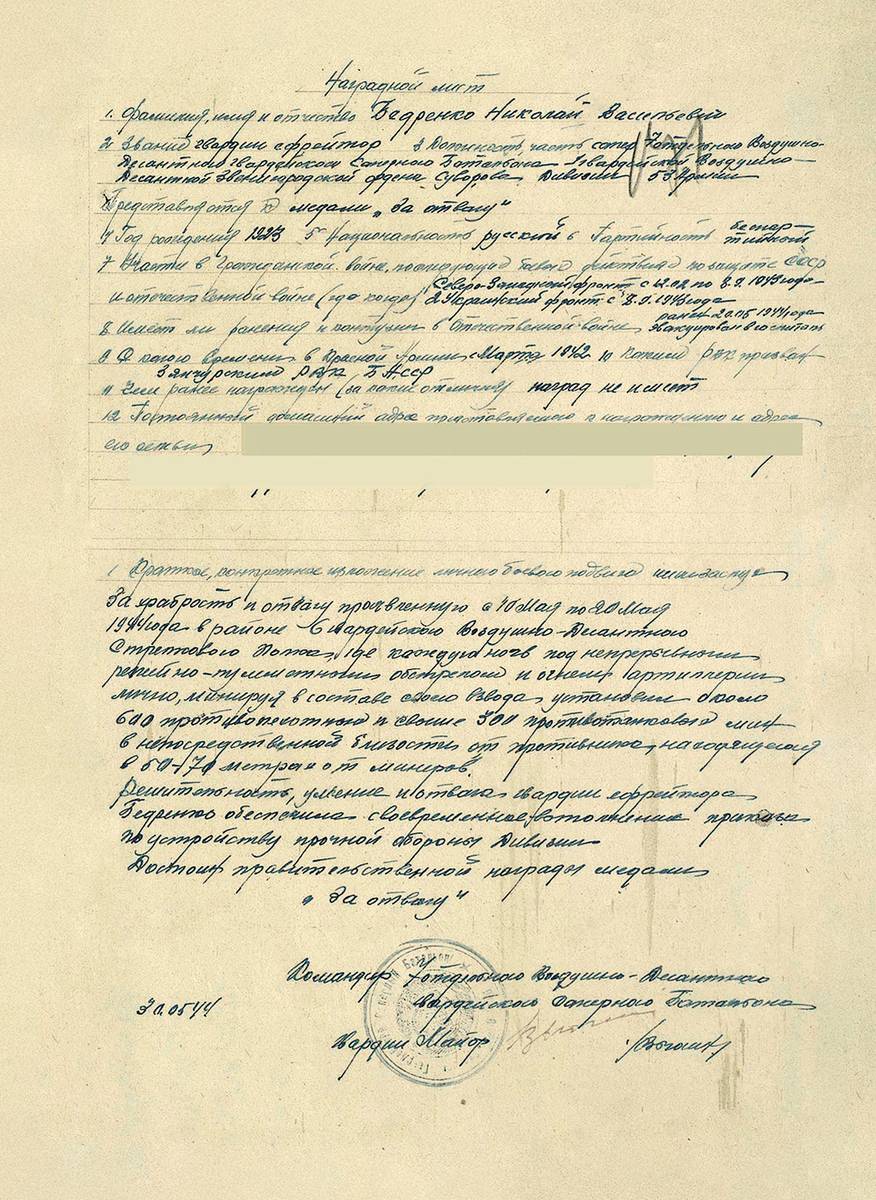 Наградной лист
1. Фамилия, имя и отчество Бедренко Николай Васильевич
2 Звание гвардии ефрейтор 3 Должность, часть сапер 7 отдельного Воздушно-
Десантного гвардейского Саперного Батальона 1 гвардейской Воздушно-
Десантной Звенигородской ордена Суворова Дивизии 53 Армии
Представляется к медали „За отвагу"
4 Год рождения 1923 5 Национальность русский 6 Партийность беспар-
тийный
7 Участие в Гражданской войне, последующих боевых действиях по защите СССР
и отечественной войне (где когда) Северо-Западный фронт с 12.02 по 8.9.1943 года
2 Украинский фронт с 8.9.1943 года
8 Имеет ли ранения и контузии в отечественной войне ранен 20.05 1944 года
эвакуирован в госпиталь
9 С какого времени в Красной Армии с Марта 1942 10 Каким РВК призван
Зянчуринским РВК БАССР
11 Чем ранее награжден (за какие отличия) наград не имеет
12 Постоянный домашний адрес представляемого к награждению и адрес
его семьи
1 Краткое, конкретное изложение личного боевого подвига или заслуг
За храбрость и отвагу проявленную с 10 Мая по 20 Мая
1944 года в районе 6 Гвардейского Воздушно-Десантного
Стрелкового Полка, где каждую ночь под непрерывным
ружейно-пулеметным обстрелом и огнем артиллерии
лично, минируя в составе своего взвода установил около
600 противопехотных и свыше 300 противотанковых мин
в непосредственной близости от противника, находящегося
в 60-70 метрах от минеров.
Решительность, умение и отвага гвардии ефрейтора
Бедренко обеспечила своевременное выполнение приказа
по устройству прочной обороны Дивизии
Достоин правительственной награды медали
„За отвагу"
Командир 7 отдельного Воздушно-Десантного
Гвардейского Саперного Батальона
30.05 44
Гвардии Майор